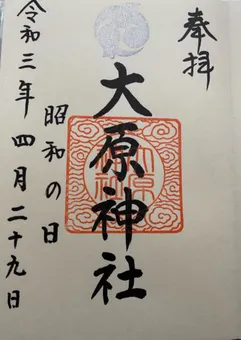 奉拝
大原神社
昭和の日
令和三年四月二十九日